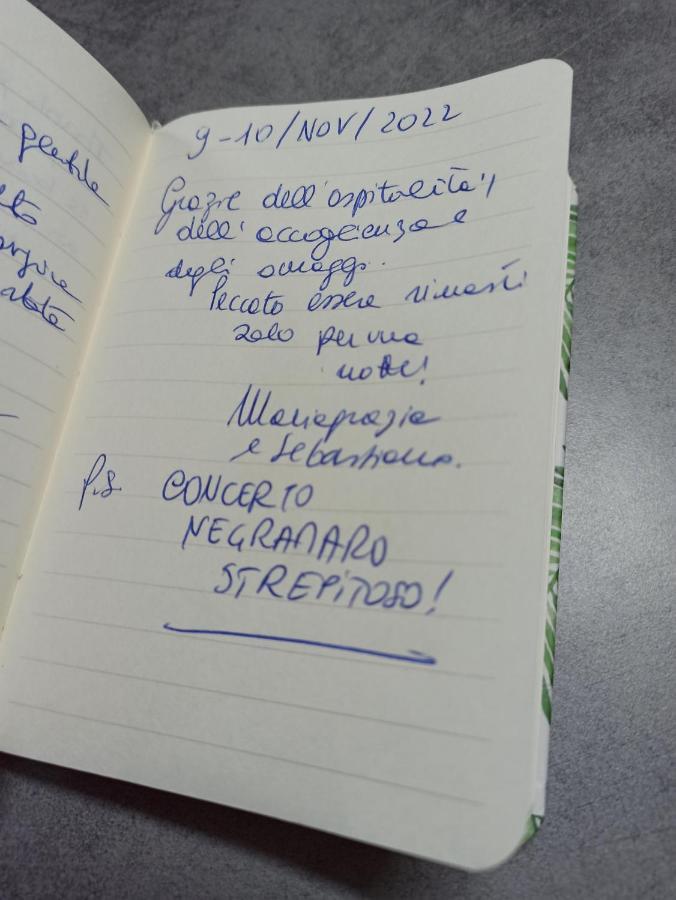 9-10/NOV/2022
Grazie dell'ospitalità,
dell'accoglienza e
degli omaggi.
Peccato essere rimasti
solo per una
notte!
Mariagrazia
e Sebastiano.
P.S. CONCERTO
NEGRAMARO
STREPITOSO!